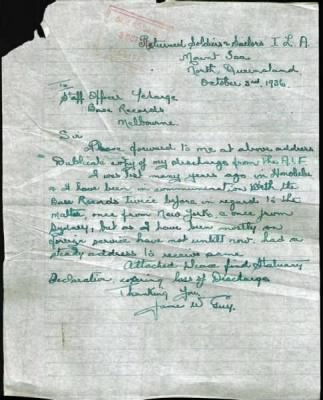 Returned Soldiers & Sailors I L A
Mount Isa
North Queensland
October 2nd. 1936.
To
Staff Officer I/charge
Base Records
Melbourne.
Sir
Please forward to me at above address
Dublicate copy of my discharge from the A.I.F.
I lost many years ago in Honolulu
& I have been in communication With the
Base Records twice before in regard to the
matter, once from New York & once from
Sydney, but as I have been mostly on
foreign service have not untill now had a
steady address to receive same
Attached please find Statuary
Declaration, covering loss of Discharge
Thanking You,
James W Guy.